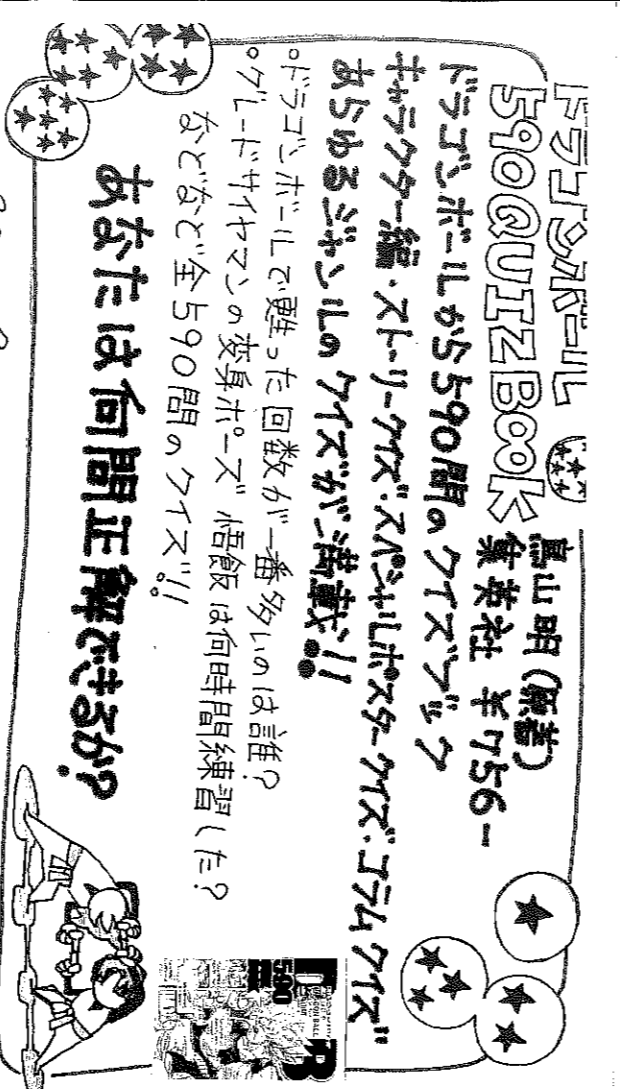 ドラゴンボール
590QUIZBook
鳥山明(原著)
集英社 ¥756-
ドラゴンボールから590問のクイズブック
キャラクター編・ストーリークイズ・スペシャルポスタークイズ・コラムクイズ
あらゆるジャンルのクイズが満載!!
。ドラゴンボールで甦った回数が一番多いのは誰?
。グレードサイヤマンの変身ポーズ 悟飯は何時間練習した?
などなど全590問のクイズ!!
あなたは何問正解できるか?
590